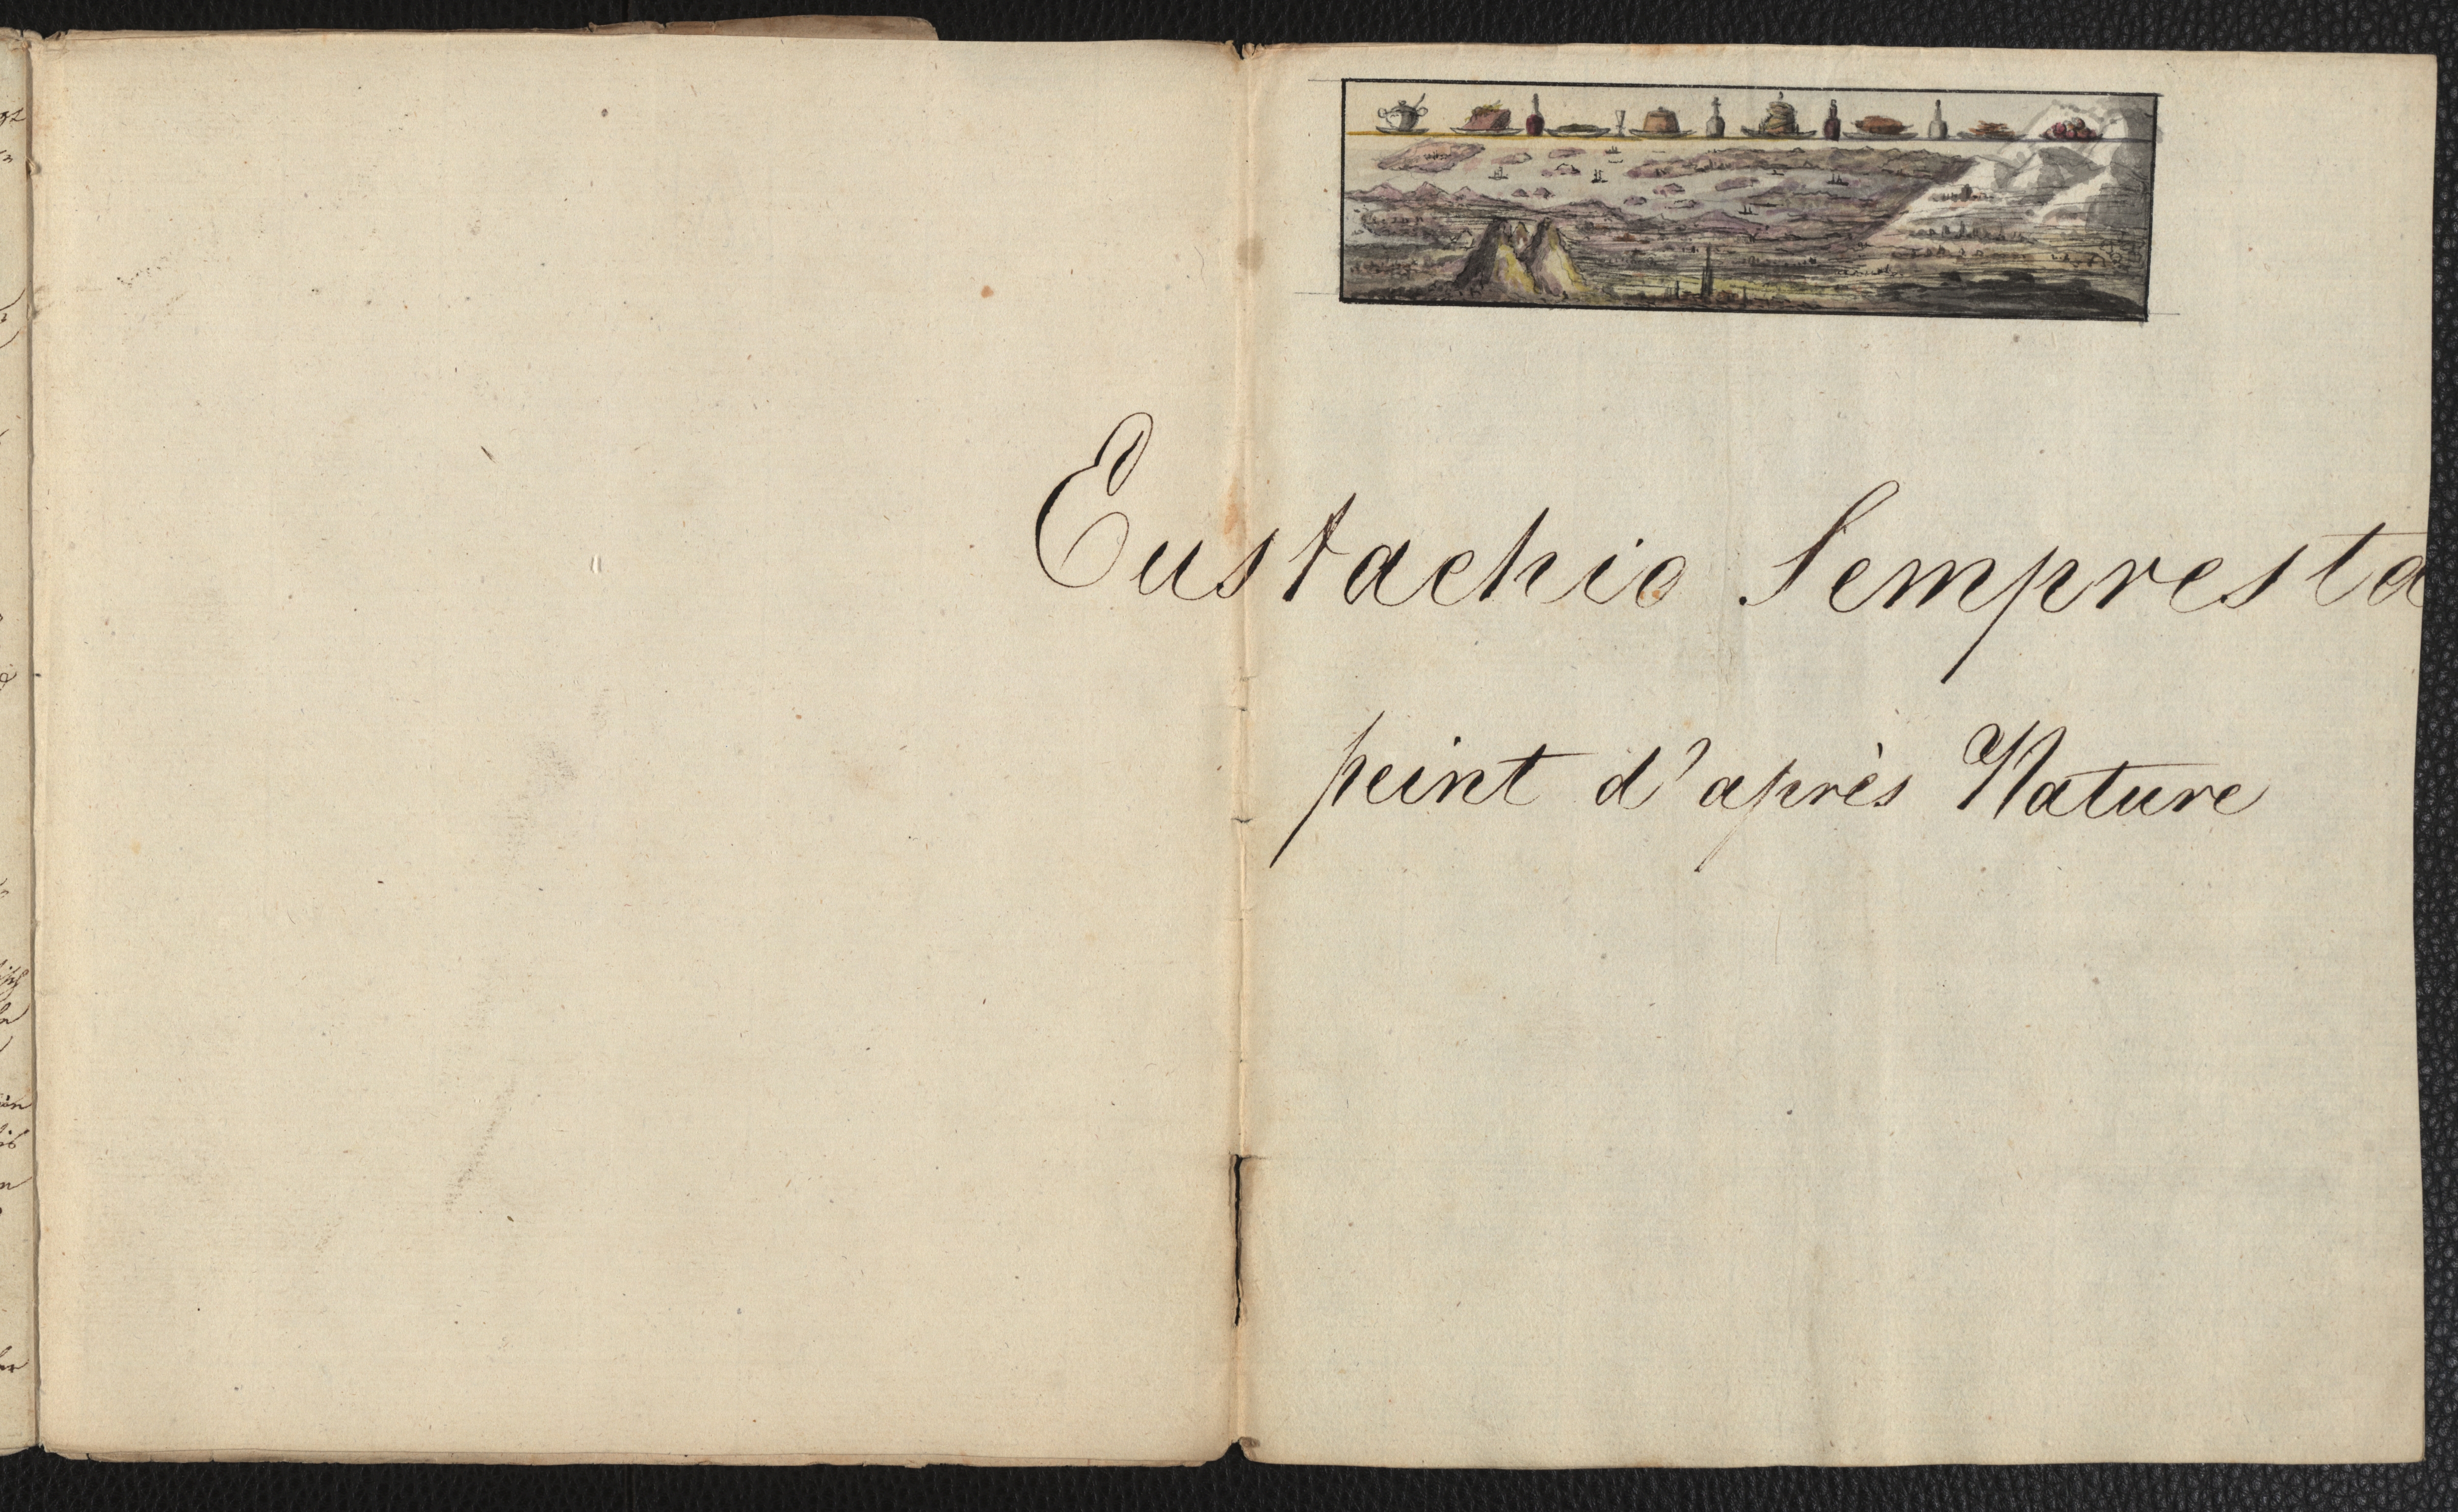 Eustachio Sempresta
peint d'après Nature